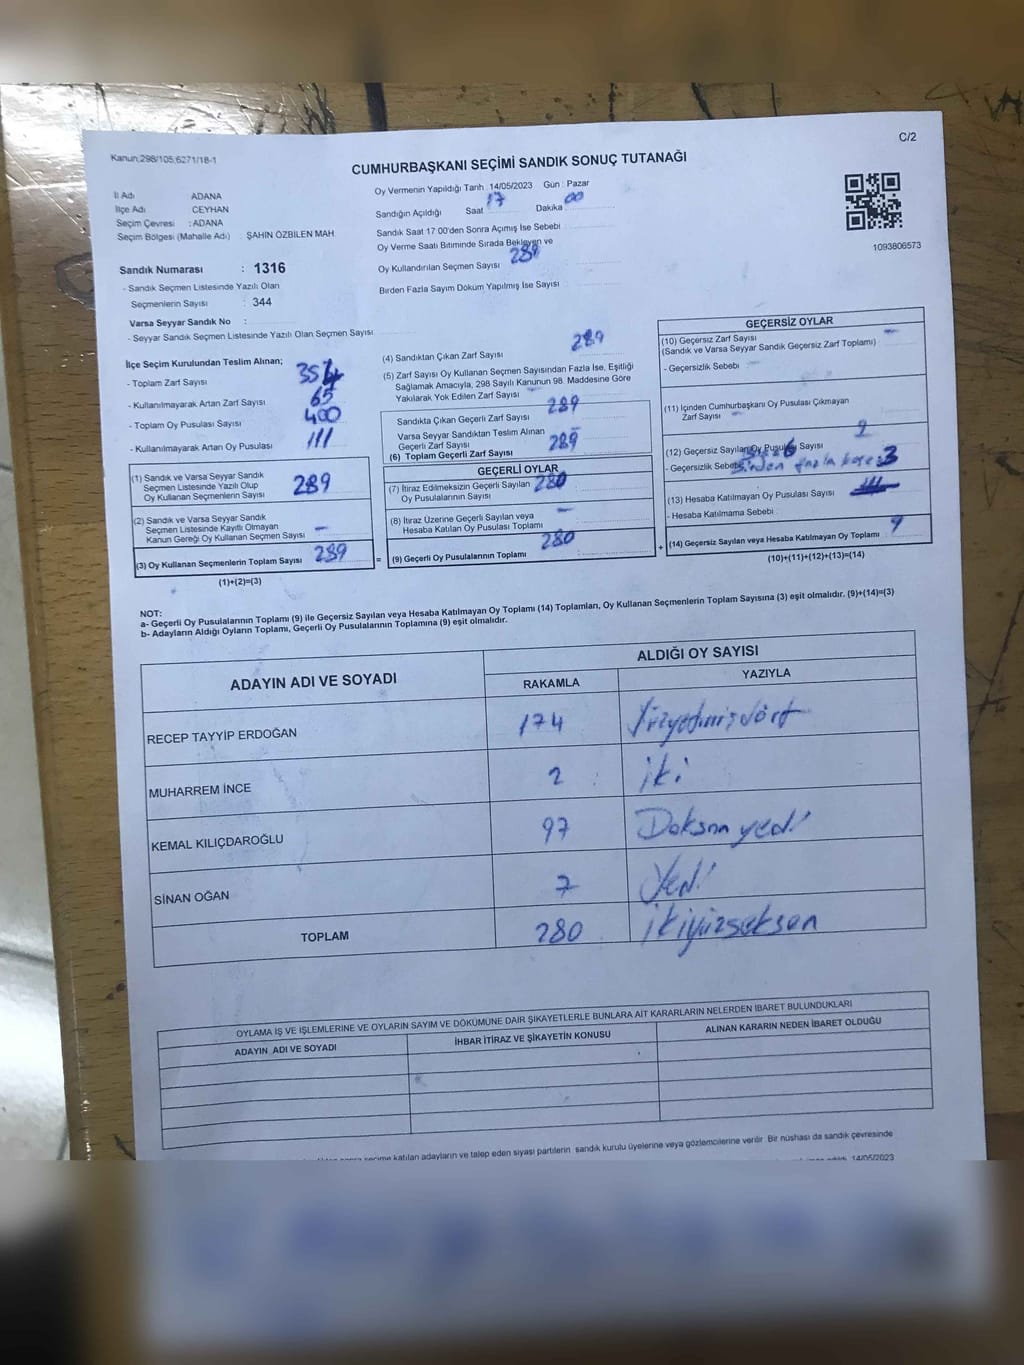 C/2
Kanun:298/105;6271/18-1
CUMHURBAŞKANI SEÇİMİ SANDIK SONUÇ TUTANAĞI
İl Adı : ADANA
İlçe Adı : CEYHAN
Seçim Çevresi : ADANA
Seçim Bölgesi (Mahalle Adı) : ŞAHİN ÖZBİLEN MAH.
Sandık Numarası : 1316
- Sandık Seçmen Listesinde Yazılı Olan
Seçmenlerin Sayısı : 344
Varsa Seyyar Sandık No :
- Seyyar Sandık Seçmen Listesinde Yazılı Olan Seçmen Sayısı
Oy Vermenin Yapıldığı Tarih 14/05/2023 Gün : Pazar
Sandığın Açıldığı Saat 17 Dakika 00
Sandık Saat 17 00'den Sonra Açımış İse Sebebi
Oy Verme Saati Bitiminde Sırada Bekleyen ve
Oy Kullandırılan Seçmen Sayısı 289
Birden Fazla Sayım Döküm Yapılmış İse Sayısı
1093806573
İlçe Seçim Kurulundan Teslim Alınan;
- Toplam Zarf Sayısı 354
- Kullanılmayarak Artan Zarf Sayısı 65
- Toplam Oy Pusulası Sayısı 400
- Kullanılmayarak Artan Oy Pusulası 111
(1) Sandık ve Varsa Seyyar Sandık
Seçmen Listesinde Yazılı Olup
Oy Kullanan Seçmenlerin Sayısı 289
(2) Sandık ve Varsa Seyyar Sandık
Seçmen Listesinde Kayıtlı Olmayan
Kanun Gereği Oy Kullanan Seçmen Sayısı –
(3) Oy Kullanan Seçmenlerin Toplam Sayısı 289
(1)+(2)=(3)
=
(4) Sandıktan Çıkan Zarf Sayısı 289
(5) Zarf Sayısı Oy Kullanan Seçmen Sayısından Fazla İse, Eşitliği
Sağlamak Amacıyla, 298 Sayılı Kanunun 98. Maddesine Göre
Yakılarak Yok Edilen Zarf Sayısı –
Sandıkta Çıkan Geçerli Zarf Sayısı 289
Varsa Seyyar Sandıktan Teslim Alınan
Geçerli Zarf Sayısı –
(6) Toplam Geçerli Zarf Sayısı 289
GEÇERLİ OYLAR
(7) İtiraz Edilmeksizin Geçerli Sayılan
Oy Pusulalarının Sayısı 280
(8) İtiraz Üzerine Geçerli Sayılan veya
Hesaba Katılan Oy Pusulası Toplamı –
(9) Geçerli Oy Pusulalarının Toplamı 280
+
GEÇERSİZ OYLAR
(10) Geçersiz Zarf Sayısı –
(Sandık ve Varsa Seyyar Sandık Geçersiz Zarf Toplamı)
- Geçersizlik Sebebi –
(11) İçinden Cumhurbaşkanı Oy Pusulası Çıkmayan
Zarf Sayısı –
(12) Geçersiz Sayılan Oy Pusulası Sayısı 9
- Geçersizlik Sebebi fazla 3
(13) Hesaba Katılmayan Oy Pusulası Sayısı
- Hesaba Katılmama Sebebi :
(14) Geçersiz Sayılan veya Hesaba Katılmayan Oy Toplamı 9
(10)+(11)+(12)+(13)=(14)
NOT:
a- Geçerli Oy Pusulalarının Toplamı (9) ile Geçersiz Sayılan veya Hesaba Katılmayan Oy Toplamı (14) Toplamları, Oy Kullanan Seçmenlerin Toplam Sayısına (3) eşit olmalıdır. (9)+(14)=(3)
b- Adayların Aldığı Oyların Toplamı, Geçerli Oy Pusulalarının Toplamına (9) eşit olmalıdır.
ADAYIN ADI VE SOYADI ALDIĞI OY SAYISI
RAKAMLA YAZIYLA
RECEP TAYYİP ERDOĞAN 174 Yüzyetmişdört
MUHARREM İNCE 2 iki
KEMAL KILIÇDAROĞLU 97 Doksan yedi
SİNAN OĞAN 7 Yedi
TOPLAM 280 ikiyüzseksen
OYLAMA İŞ VE İŞLEMLERİNE VE OYLARIN SAYIM VE DÖKÜMÜNE DAİR ŞİKAYETLERLE BUNLARA AİT KARARLARIN NELERDEN İBARET BULUNDUKLARI
ADAYIN ADI VE SOYADI İHBAR İTİRAZ VE ŞİKAYETİN KONUSU ALINAN KARARIN NEDEN İBARET OLDUĞU
sonra seçime katılan adayların ve talep eden siyasi partilerin sandık kurulu üyelerine veya gözlemcilerine verilir. Bir nüshası da sandık çevresinde
14/05/2023